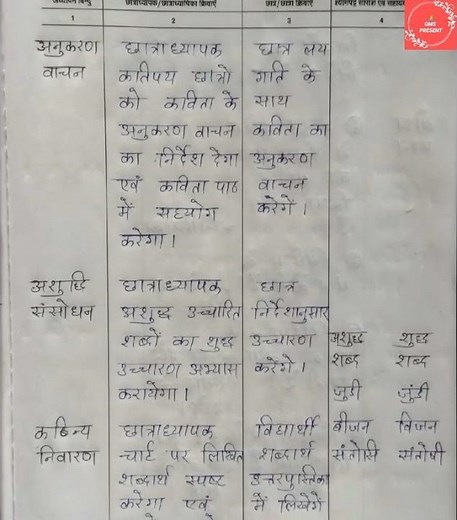 छात्राध्यापक/छात्राध्यापिका क्रियाएँ
छात्र/छात्रा क्रियाएँ
1 2 3 4
GMS
PRESENT
अनुकरण छात्राध्यापक छात्र लय
वाचन कतिपय छात्रो गति के
को कविता के साथ
अनुकरण वाचन कविता का
का निर्देश देगा अनुकरण
एवं कविता पाठ वाचन
में सहयोग करेगें।
करेगा।
अशुद्धि छात्राध्यापक छात्र
संसोधन अशुद्ध उच्चारित निर्देशानुसार
शब्दों का शुद्ध उच्चारण अशुद्ध शुद्ध
उच्चारण अभ्यास करेंगे। शब्द शब्द
करायेगा। जुडी जुंडी
कठिन्य छात्राध्यापक विद्यार्थी बीजन विजन
निवारण चार्ट पर लिखित शब्दार्थ संतोसी संतोषी
शब्दार्थ स्पष्ट उत्तरपुस्तिका
करेगा एवं में लिखेगें